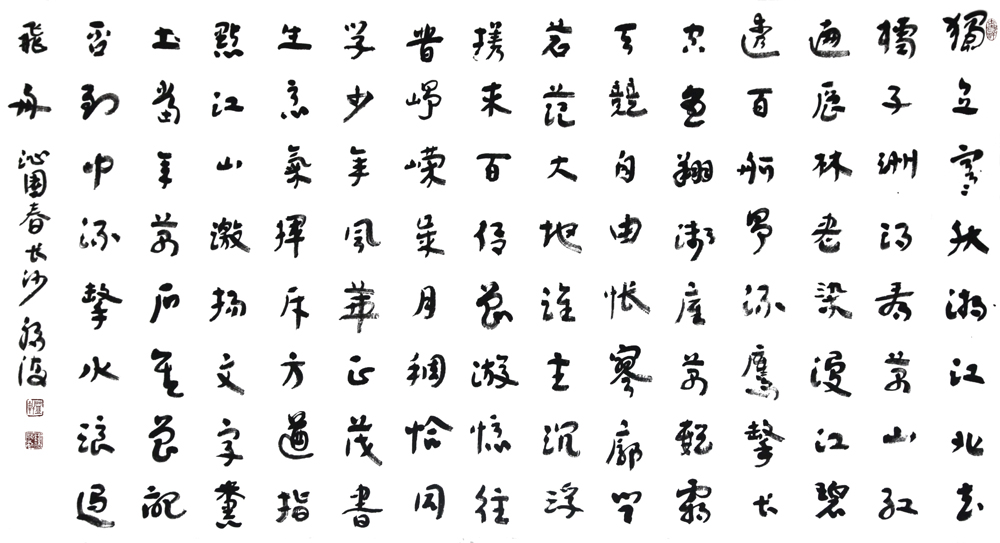 獨立寒秋湘江北去
橘子洲頭看萬山紅
遍層林盡染漫江碧
透百舸爭流鷹擊长
空魚翔淺底萬類霜
天競自由悵寥廓問
蒼茫大地誰主沉浮
携来百侣曾游憶往
昔崢嶸歲月稠恰同
学少年風華正茂書
生意氣揮斥方遒指
點江山激揚文字糞
土當年萬戶侯曾記
否到中流擊水浪遏
飛舟 沁園春长沙